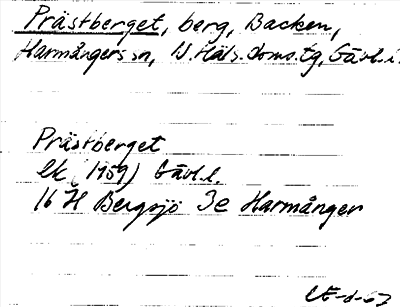 Prästberget, berg, Backen,
Harmångers sn, N. Häls. doms. tg, Gävl. l.
Prästberget
Ek (1959) Gävl. l.
16 H Bergsjö 3e Harmånger